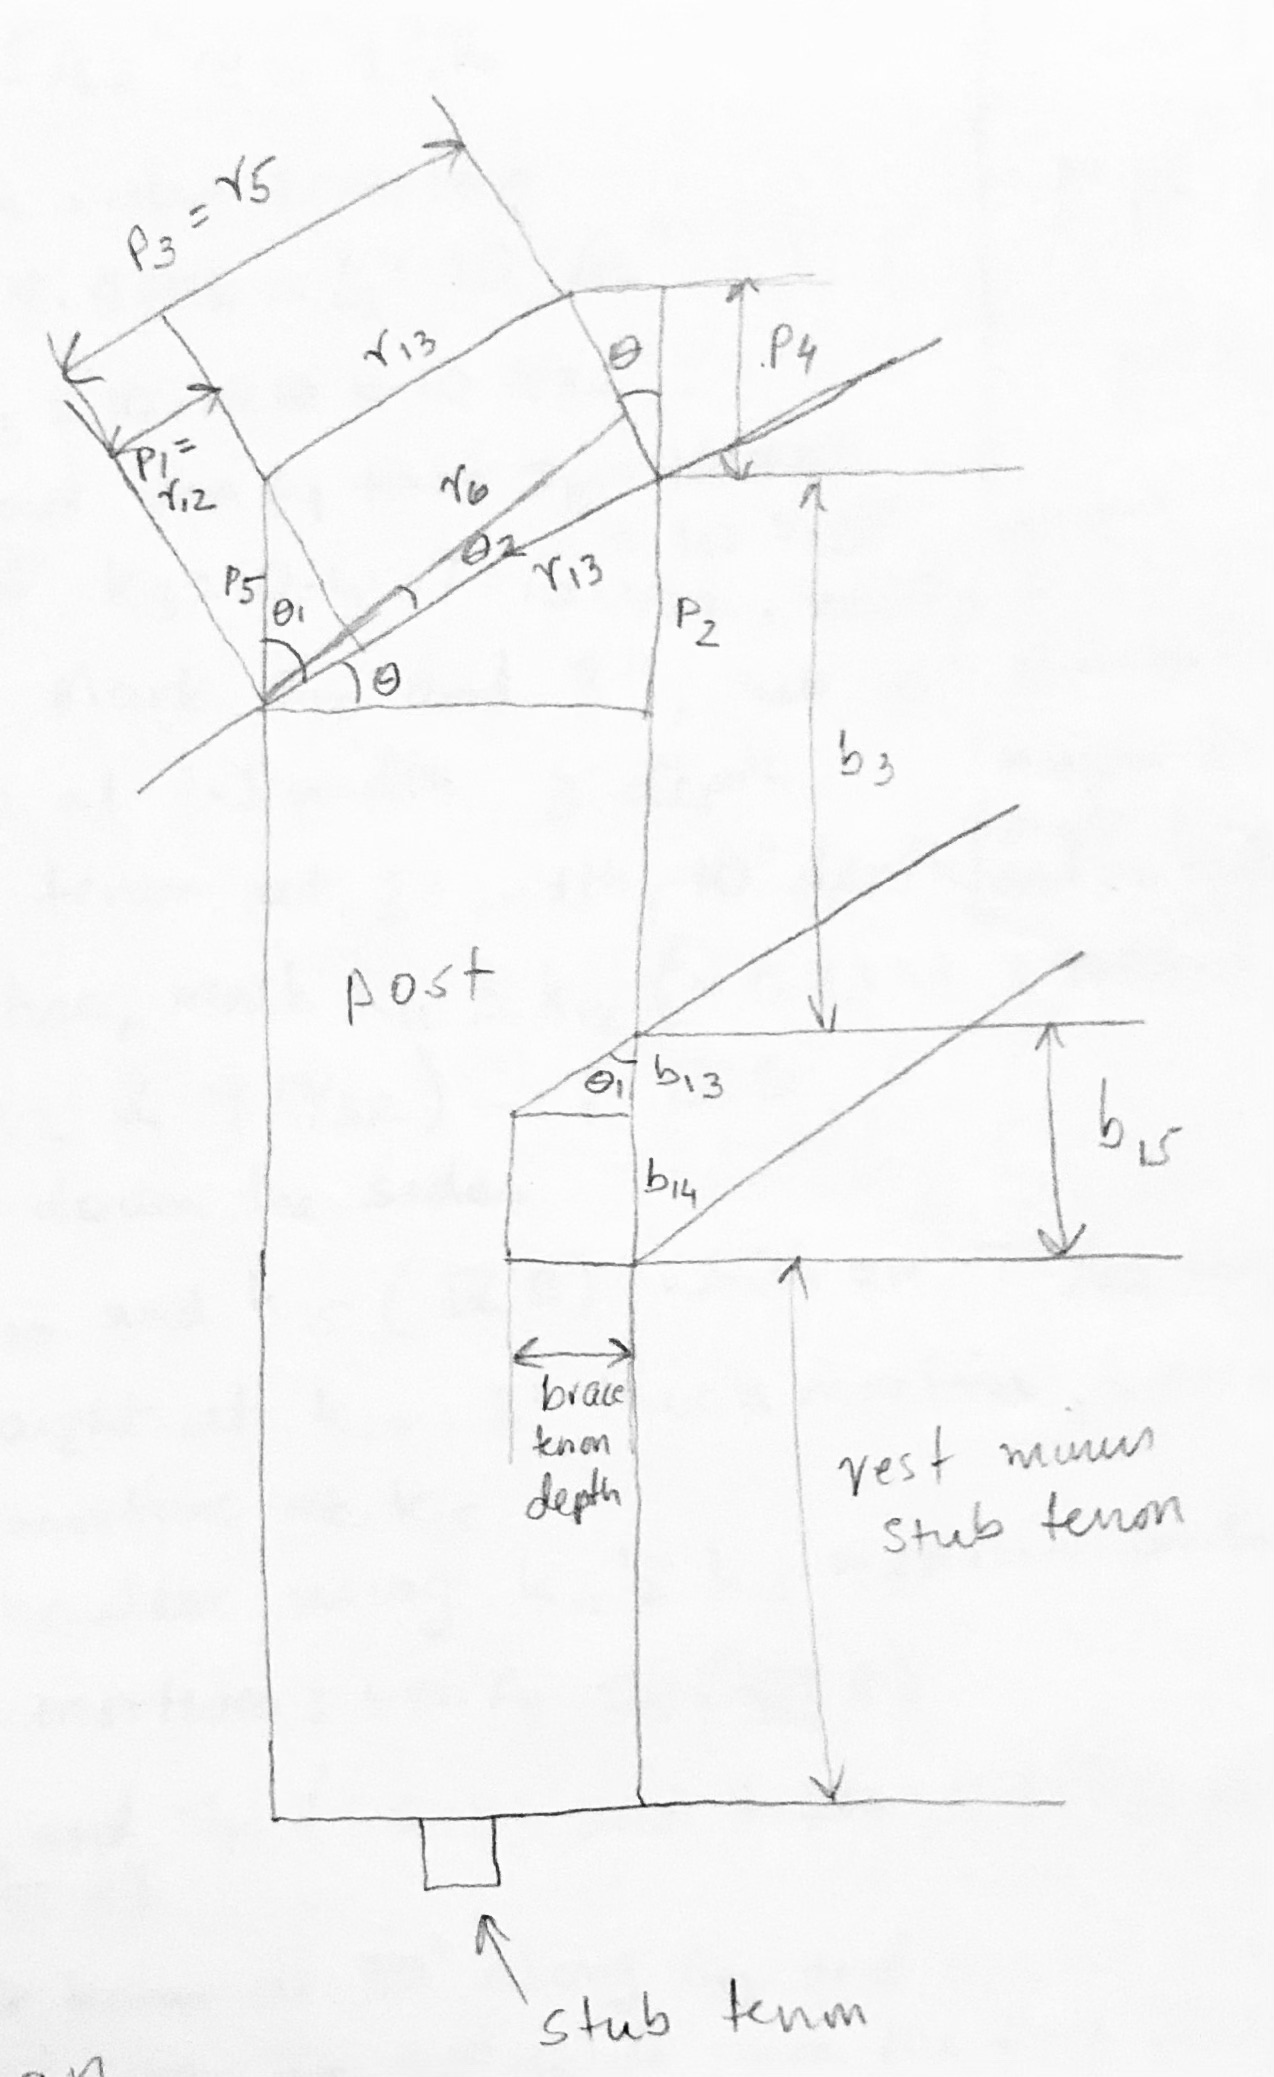 P3 = r5
r13
θ
P4
P1=
r12
r6
θ2
r13
P5
θ1
θ
P2
b3
post
θ1
b13
b14
b15
brace
tenon
depth
rest minus
stub tenon
stub tenon